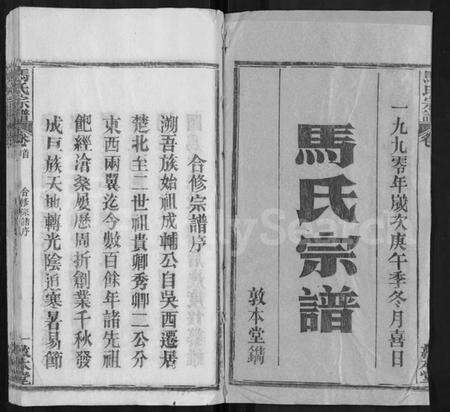 一九九零年歲次庚午季冬月喜日
馬氏宗譜
敦本堂鐫
合修宗譜序
溯吾族始祖成輔公自吳西遷居
楚北至二世祖貴卿秀卿二公分
東西兩翼迄今數百餘年諸先祖
飽經滄桑屢歷周折創業千秋發
成巨族天地轉光陰迫寒暑易節
馬氏宗譜
卷首
合修宗譜序
一
敦本堂